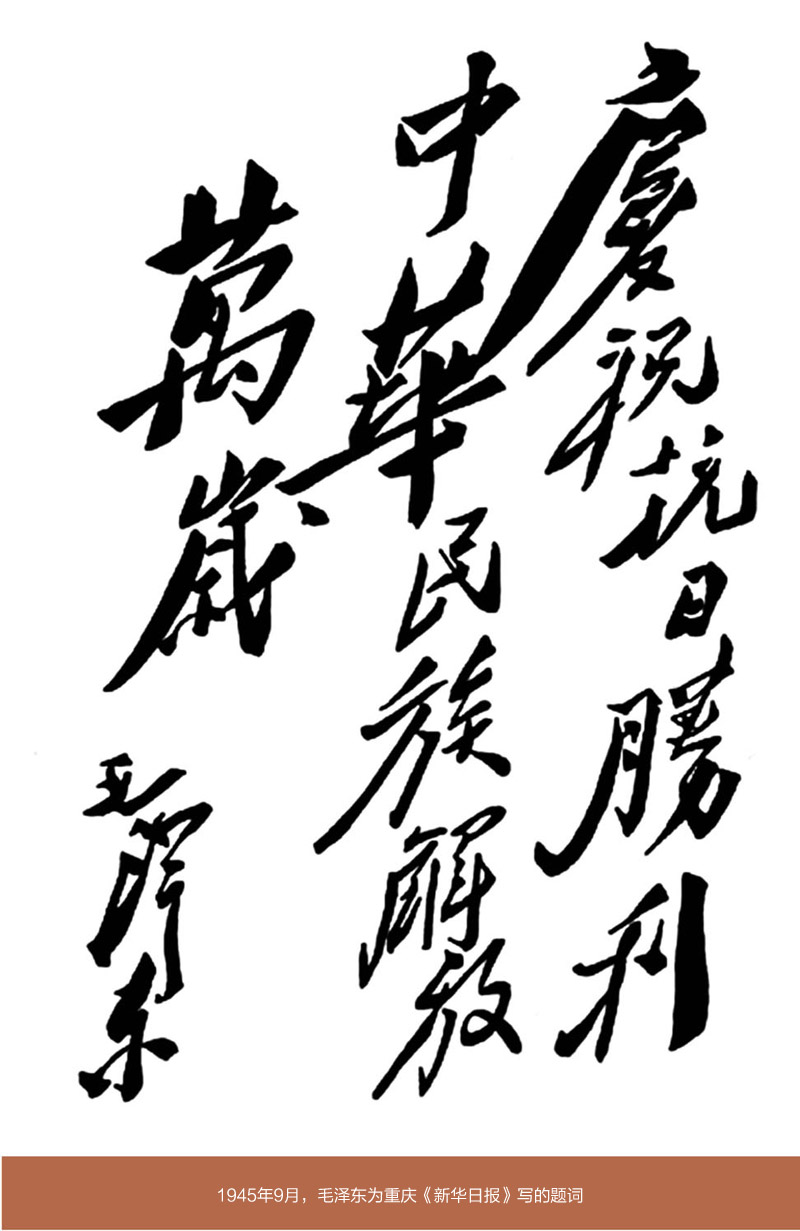 慶祝抗日勝利
中華民族解放
萬歲
毛澤东
1945年9月，毛泽东为重庆《新华日报》写的题词